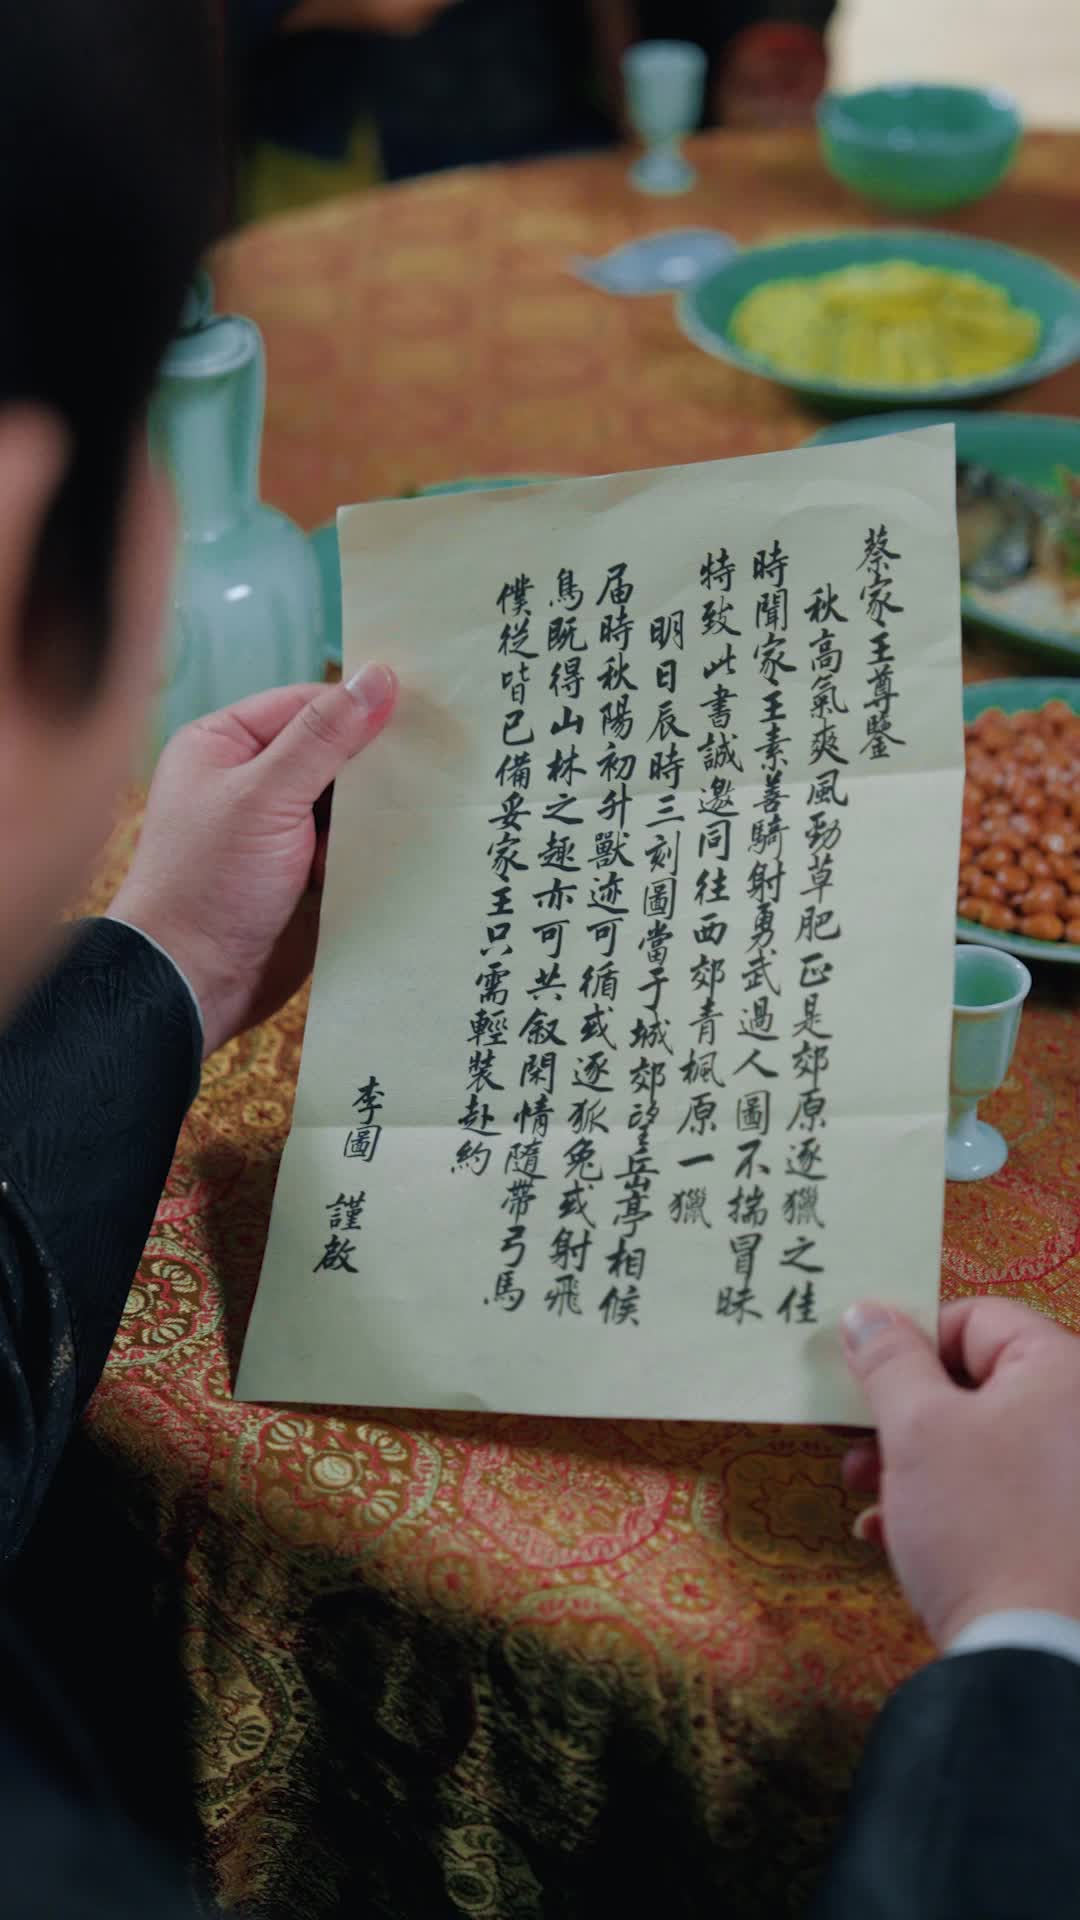 蔡家王尊鑒
秋高氣爽風勁草肥正是郊原逐獵之佳
時聞家王素善騎射勇武過人圖不揣冒昧
特致此書誠邀同往西郊青楓原一獵
明日辰時三刻圖當于城郊望岳亭相候
届時秋陽初升獸迹可循或逐狐兔或射飛
鳥既得山林之趣亦可共叙閑情隨帶弓馬
僕從皆已備妥家王只需輕裝赴約
李圖 謹啟